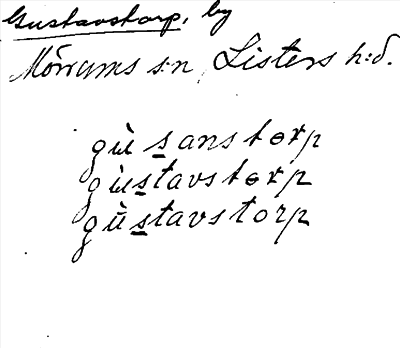 Gustavstorp, by
Mörrums s:n, Listers h:d.
gù sanstɵrp
gùstavstɵrp
gùstavstorp